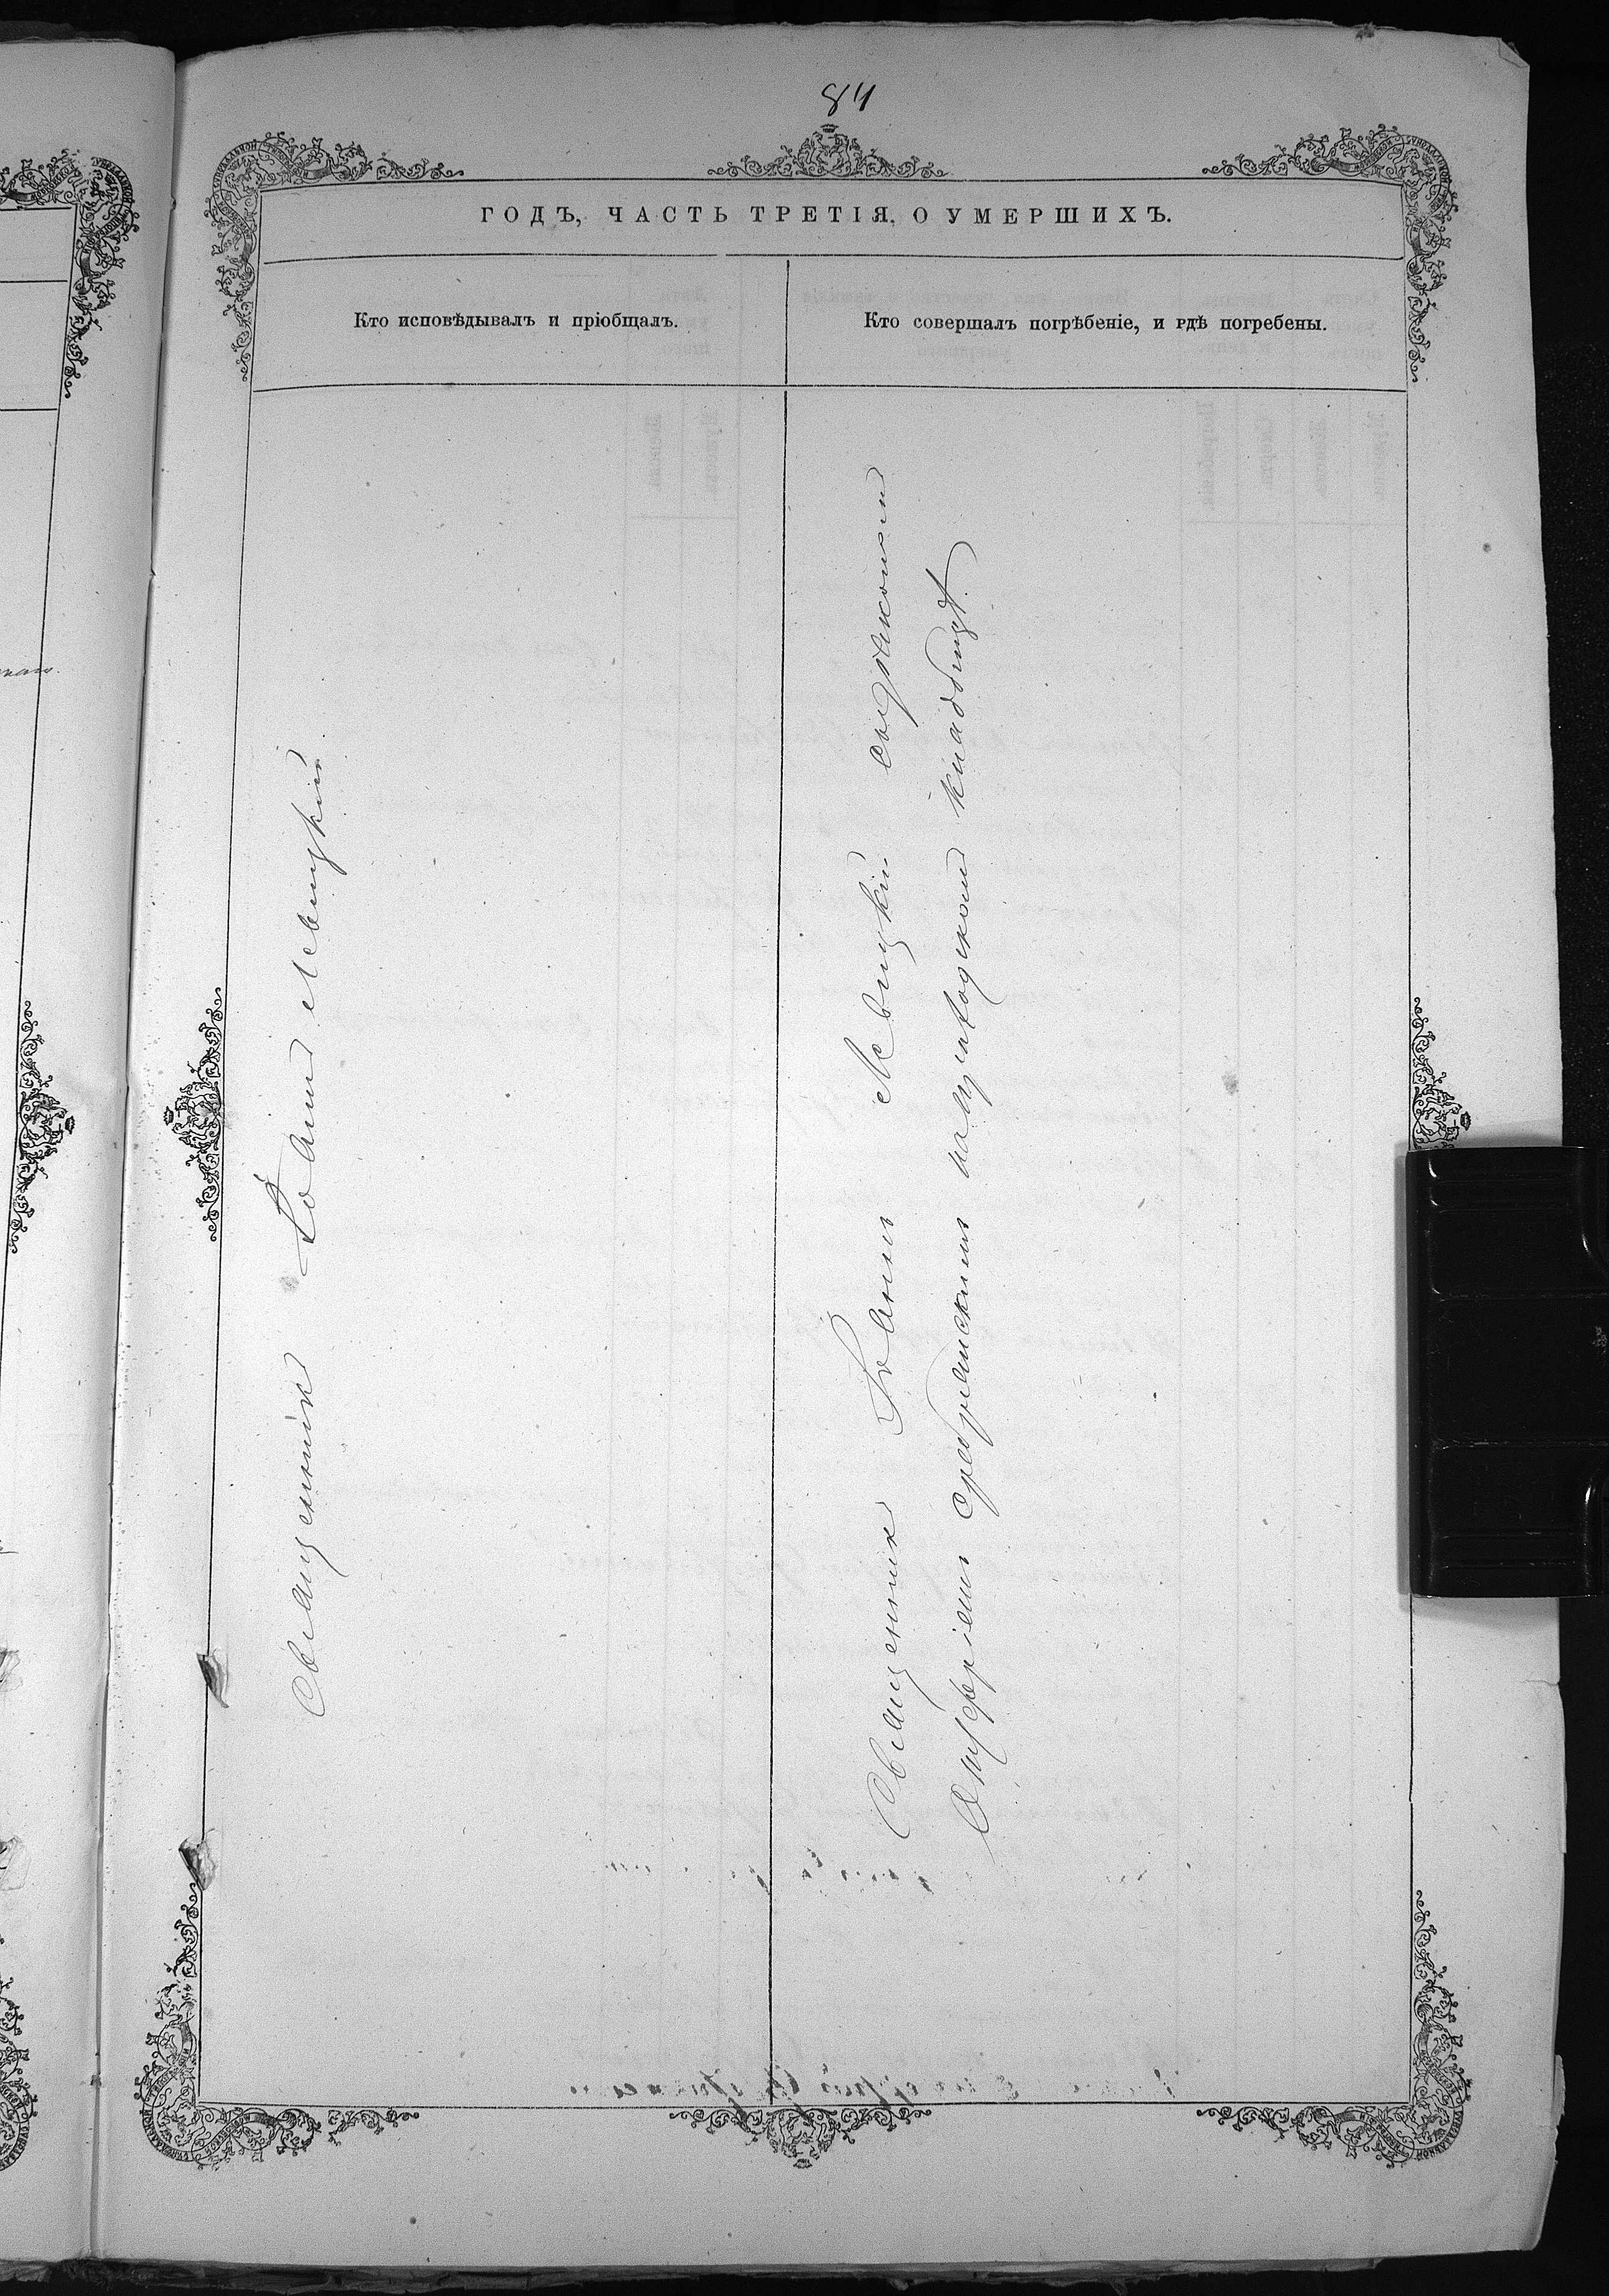 84
ГОДЪ, ЧАСТЬ ТРЕТІЯ, О УМЕРШИХЪ.
Кто исповѣдывалъ и пріобщалъ.
Кто совершалъ погрѣбеніе, и гдѣ погребены.
Священник Іоанн Левицкій
Священник Іоанн Левицкій с
Сребрянским на кладбищѣ.